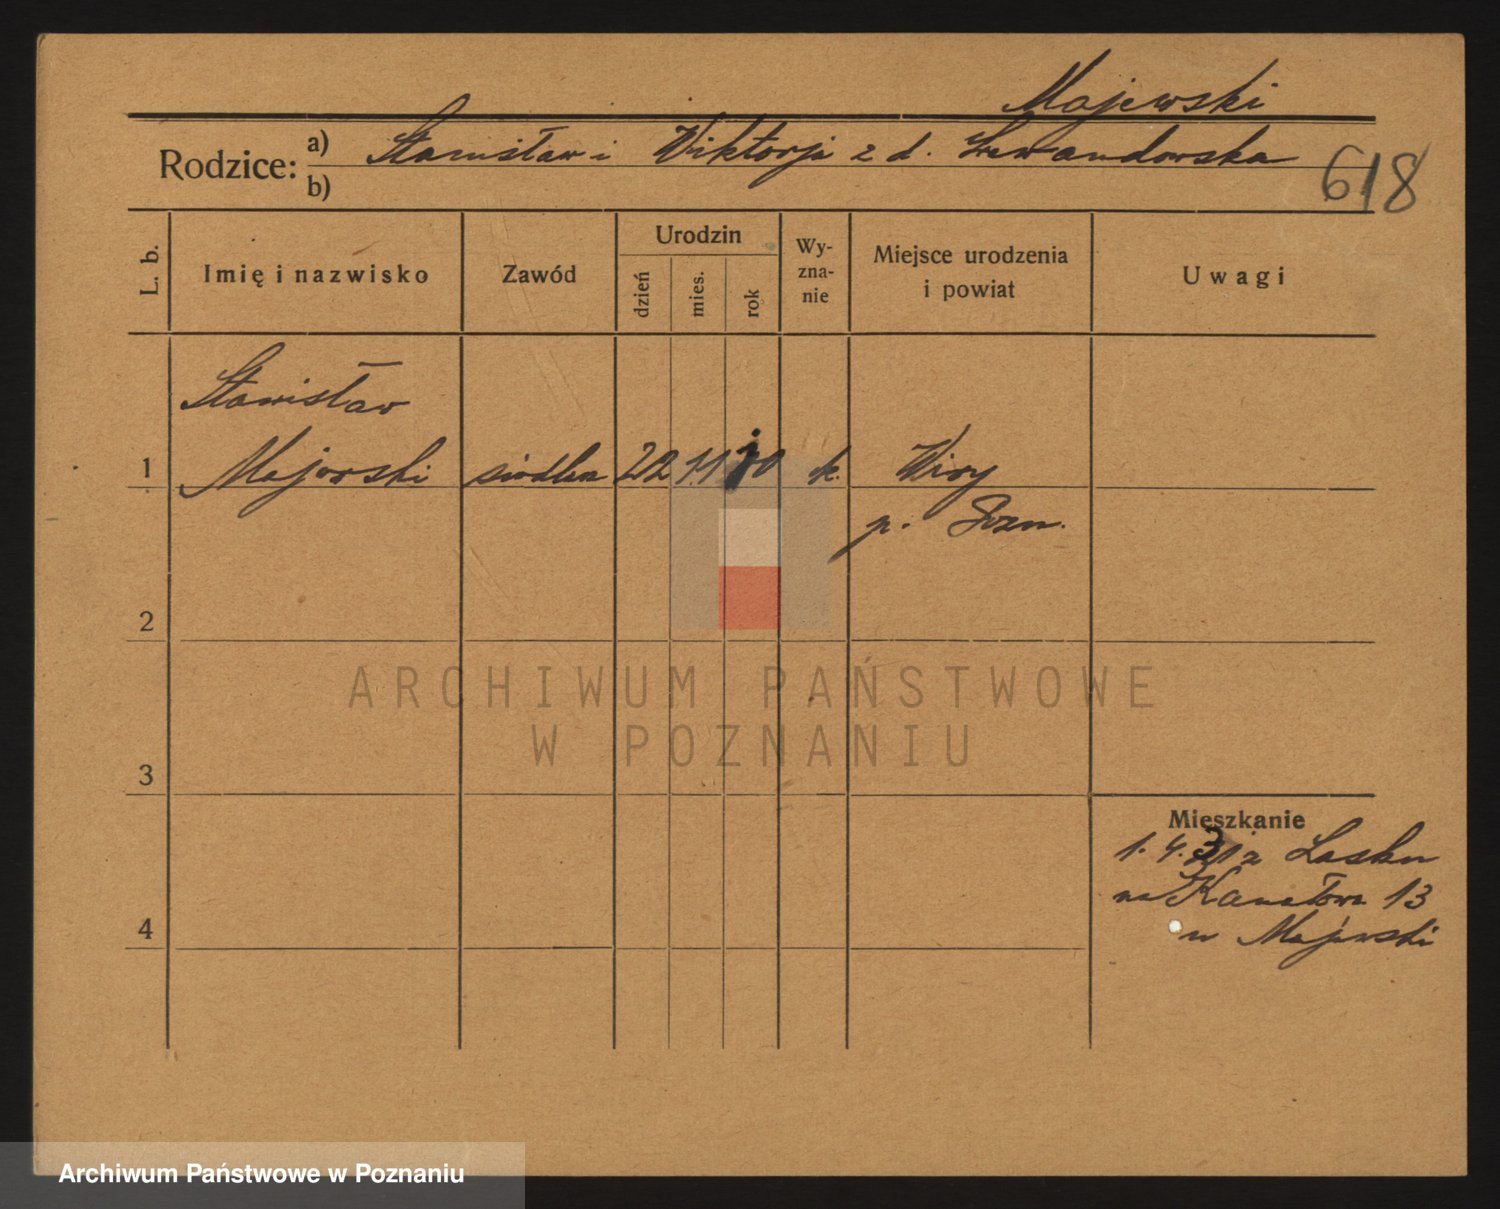 Majewski
Rodzice: a) Stanisław i Wiktorja z d. Lewandowska
b)
618
L. b.
Imię i nazwisko
Zawód
Urodzin
dzień
mies.
rok
Wy-
zna-
nie
Miejsce urodzenia
i powiat
Uwagi
Stanisław
1 Majewski siodlarz 22 11 k. Wiry
p. Pozn.
2
3
4
Mieszkanie
1. 4. 31 z Lasku
na Kanałowa 13
u Majewski
ARCHIWUM PAŃSTWOWE
W POZNANIU
Archiwum Państwowe w Poznaniu